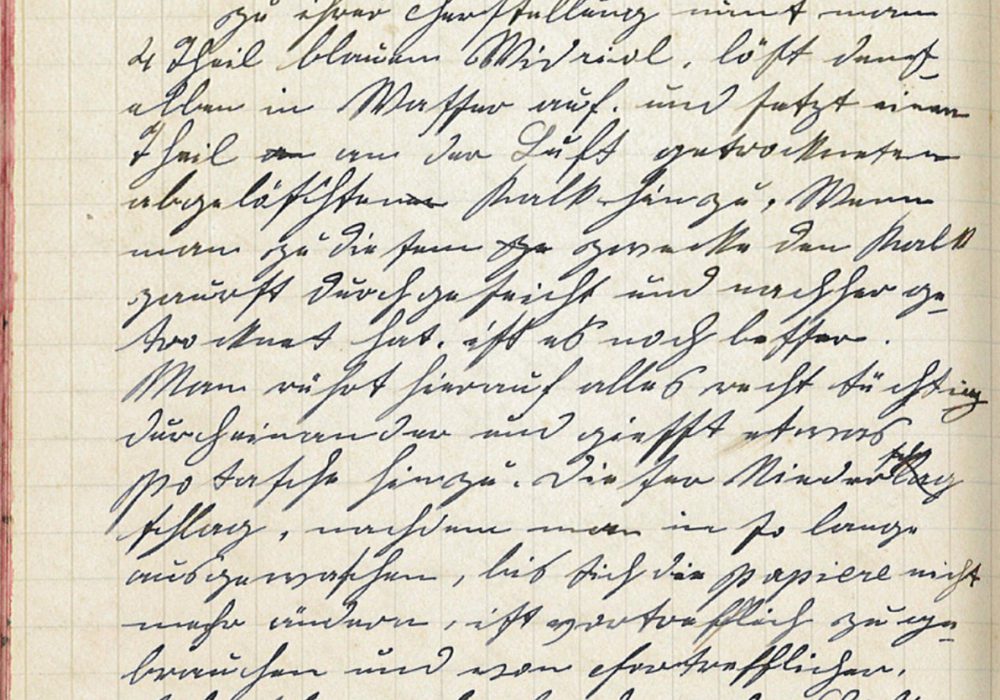 zu ihrer Herstellung nimt man
4 Theil blauen Widriol, löst dens-
elben in Wasser auf. und setzt einen
Theil an der Luft getrockneten
abgelöschten Kalk hinzu, Wenn
man zu diesem zwecke den Kalk
zaurst durchgeseicht und nachher ge-
trocknet hat. ist es noch besser.
Man rührt hierauf alles recht tüchtig
durcheinander und giesst etwas
Potasche hinzu. Dieser Nieder
schlag, nachdem man in so lange
ausgewaschen, bis sich die Papiere nicht
mehr ändern, ist vortrefflich zu ge-
brauchen und von fortrefflicher.